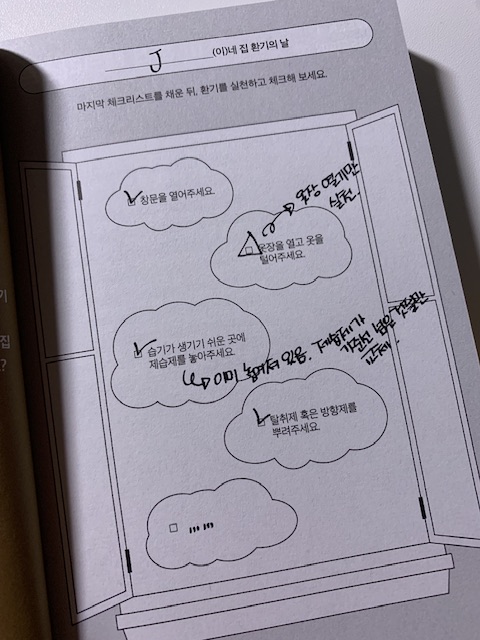 J (이)네 집 환기의 날
마지막 체크리스트를 채운 뒤, 환기를 실천하고 체크해 보세요.
창문을 열어주세요.
옷장 열기만
실천
옷장을 열고 옷을
털어주세요.
습기가 생기기 쉬운 곳에
제습제를 놓아주세요.
이미 놓여져 있음. 제습제가
넘은 것들만
교체.
탈취제 혹은 방향제를
뿌려주세요.
,,, ,,,
집
?